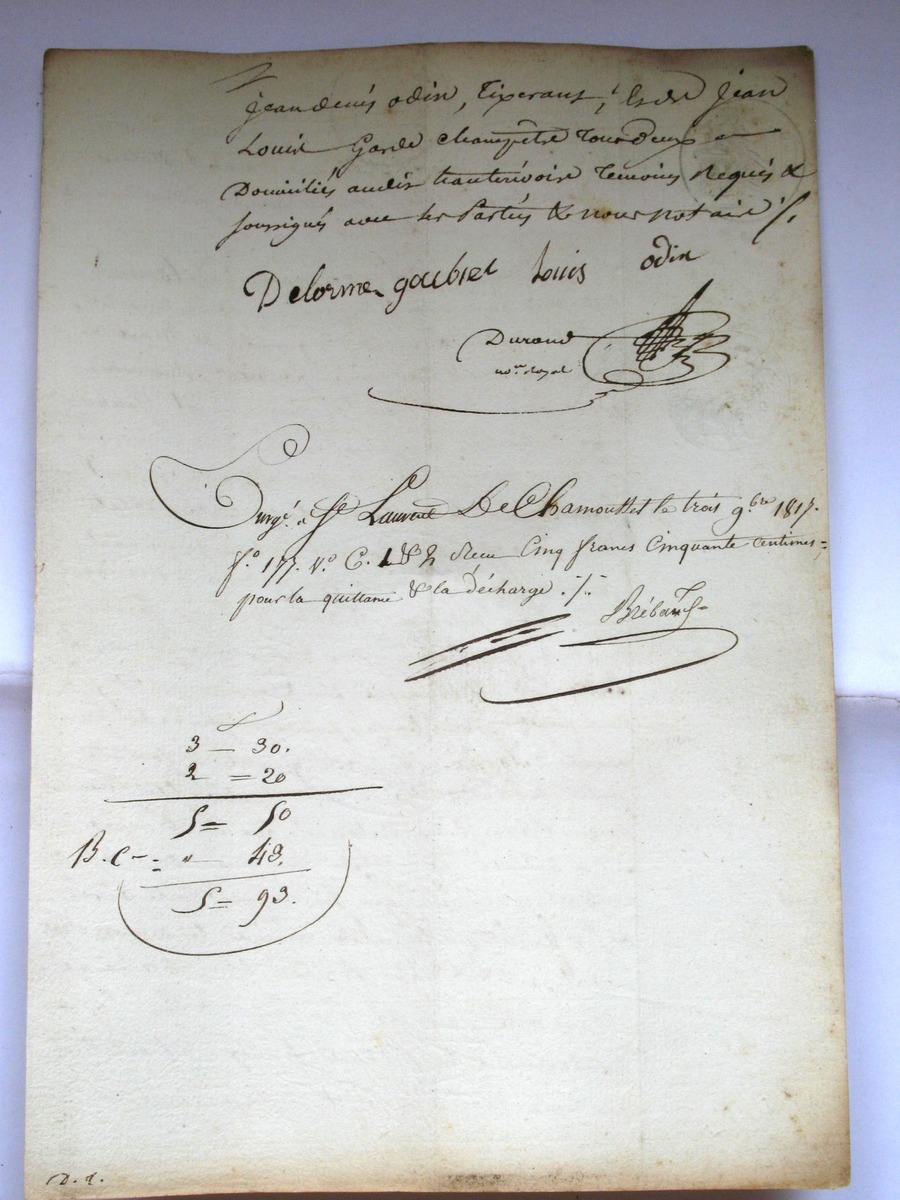 Jean denis odin, Tixerant, & Jean
Louis Garde Champêtre Tous deux
Domiciliés audit hauterivoire Temoins Requis &
soussignés avec les Parties & nous notaire ./.
Delorme goubiet Louis odin
Durand
no.re Royal
Enregé. a St Laurent De Chamousset le trois 9.bre 1817.
f.o 177. v.o C. 1 & 2 Recu Cinq francs Cinquante centimes =
pour la quittance & la décharge ./.
3 — 30.
2 = 20
5 = 50
B. C — : " — 43.
5 = 93.
D. d.